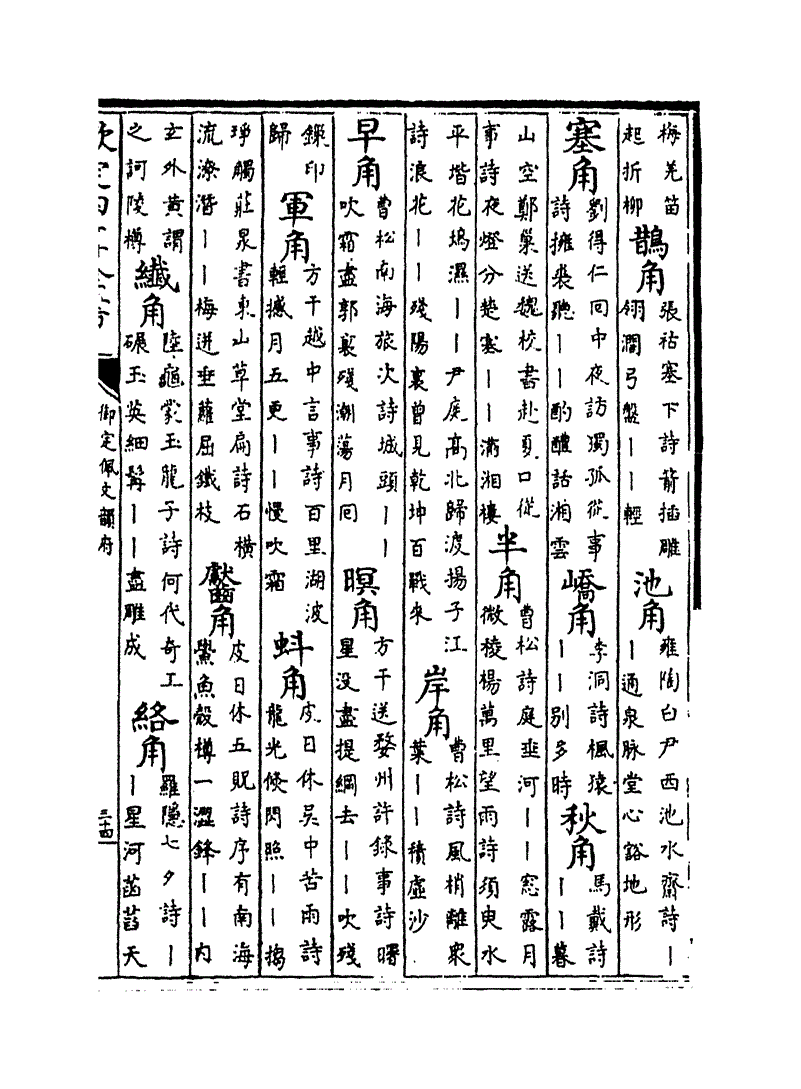 梅羌笛
起折柳
鵲角
張祜塞下詩箭插雕
翎濶弓盤丨丨輕
池角
雍陶白尹西池水齋詩丨
丨通泉脉堂心谿地形
塞角
劉得仁回中夜訪獨孤從事
詩擁裘聽丨丨酌醴話湘雲
嶠角
李洞詩楓猿
丨丨别多時
秋角
馬戴詩
丨丨暮
山空鄭巢送魏校書赴夏口從
事詩夜燈分楚塞丨丨滿湘樓
半角
曹松詩庭垂河丨丨窓露月
微稜楊萬里望雨詩須臾水
平堦花塢濕丨丨尹庭高北歸渡揚子江
詩浪花丨丨殘陽裏曾見乾坤百戰來
岸角
曹松詩風梢離衆
葉丨丨積虚沙
早角
曹松南海旅次詩城頭丨丨
吹霜盡郭裏殘潮蕩月回
暝角
方干送婺州許録事詩曙
星没盡提綱去丨丨吹殘
鏁印
歸
軍角
方干越中言事詩百里湖波
輕撼月五更丨丨慢吹霜
蚪角
皮日休吳中苦雨詩
龍光倐閃照丨丨搊
琤觸莊㫤書東山草堂扁詩石橫
流潦潛丨丨梅迸垂蘿屈鐵枝
齾角
皮日休五貺詩序有南海
鱟魚殼樽一澀鋒丨丨内
玄外黄謂
之訶陵樽
纖角
陸龜蒙玉龍子詩何代竒工
碾玉英細髯丨丨盡雕成
絡角
羅隱七夕詩丨
丨星河菡萏天
欽定四庫全書
御定佩文韻府
三十四